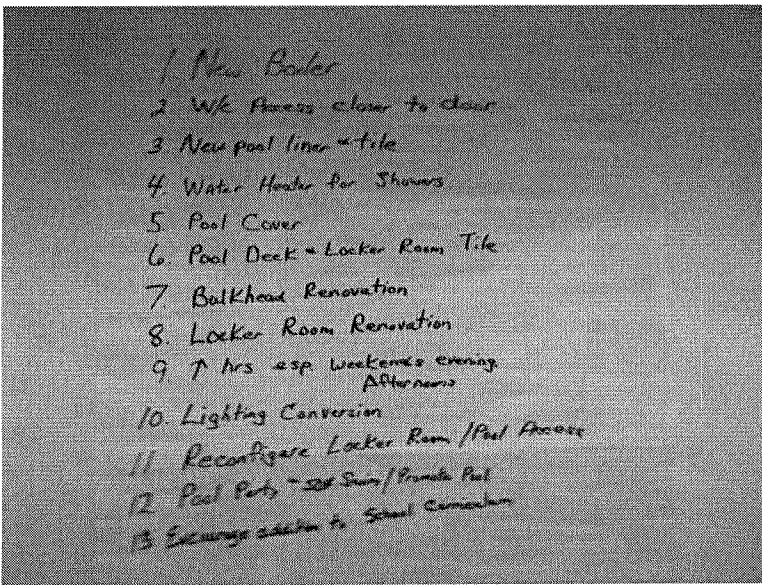 1 New Boiler
2 W/C Access closer to door
3 New pool liner + tile
4. Water Heater for Showers
5 Pool Cover
6. Pool Deck + Locker Room Tile
7 Bulkhead Renovation
8. Locker Room Renovation
9 ↑ hrs esp. weekends evening
Afternoons
10. Lighting Conversion
11 Reconfigure Locker Room / Pool Access
12 Pool Party - Swim / Promote Pool
13 Encourage addition to School Curriculum